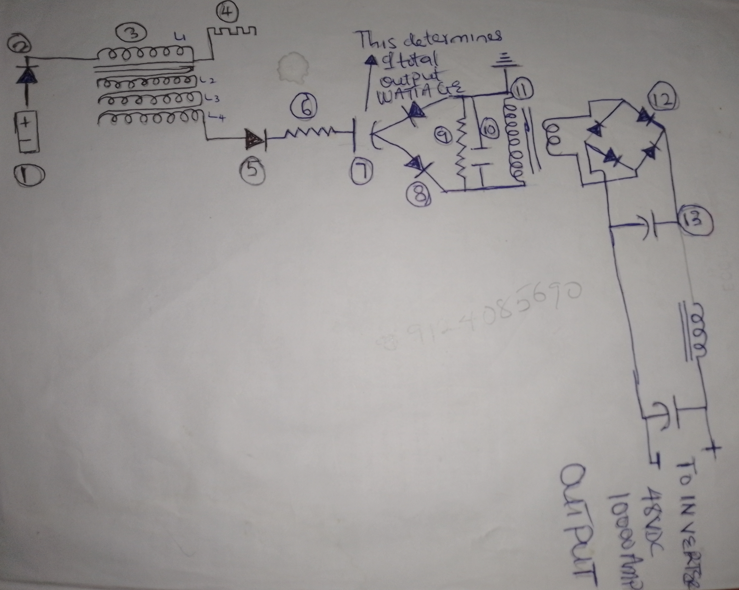 4
3
L1
2
This determines
total
output
WATTAGE
L2
L3
L4
6
11
12
+ -
9
10
1
5
7
8
13
+
TO INVERTER
48VDC
10000AMP
OUTPUT